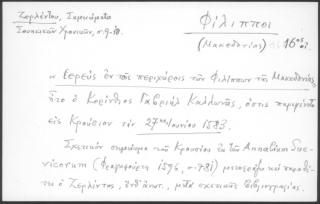 Ζερλέντου, Σημειώματα
Σιωνιτικῶν Χρονικῶν, σ. 9-10.
Φίλιπποι
(Μακεδονίας) 16ος αἰ.
«ἱερεὺς ἐν τοῖς περιχώροις τῶν Φιλίππων τῆς Μακεδονίας
ἦτο ὁ Κορίνθιος Γαβριὴλ Καλλωνᾶς, ὅστις παρεγένετο
εἰς Κρούσιον τὴν 27ην Ἰουνίου 1583.
Σχετικὸν σημείωμα τοῦ Κρουσίου ἐκ τῶν
(Φραγκφούρτη 1596, σ. 781) μεταφράζει καὶ παραθέτει
ὁ Ζερλέντης, ἔνθ' ἀνωτ., μετὰ σχετικῆς βιβλιογραφίας.